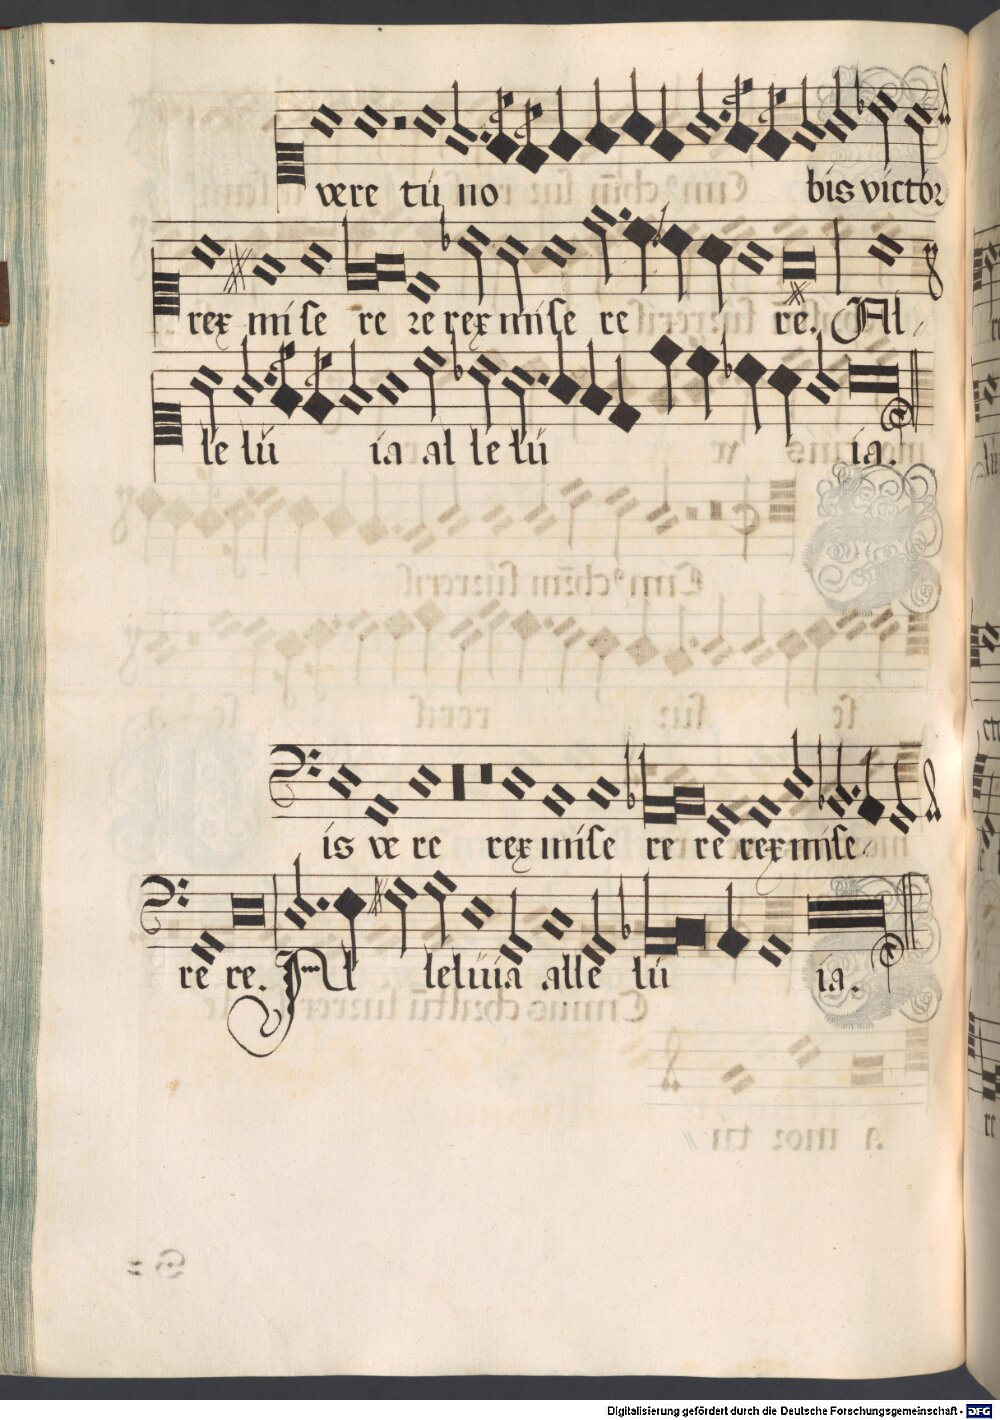 vere tu no bis victor
rex mi se re re rex mi se re re. Al
le lu ia al le lu ia.
is ve re rex mi se re re rex mi se
re re. Al le lu ia al le lu ia.
Digitalisierung gefördert durch die Deutsche Forschungsgemeinschaft - DFG